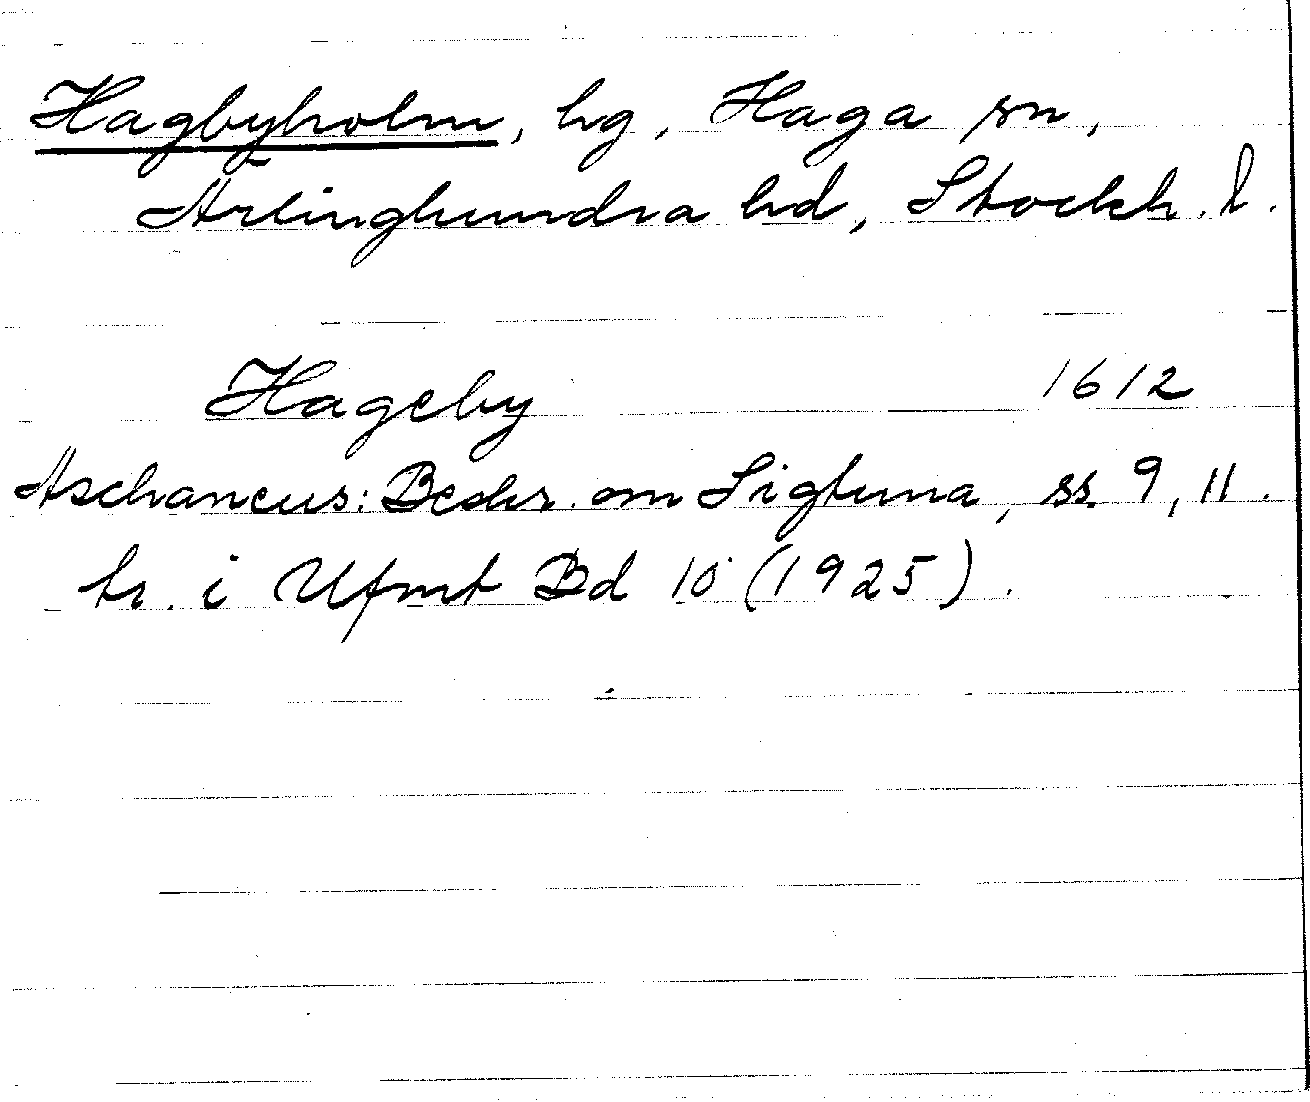 Hagbyholm, hg, Haga sn,
Ärlinghundra hd, Stockh. l.
Hageby 1612
Aschaneus: Beskr. om Sigtuna, ss. 9, 11.
tr. i Ufmt Bd 10 (1925).